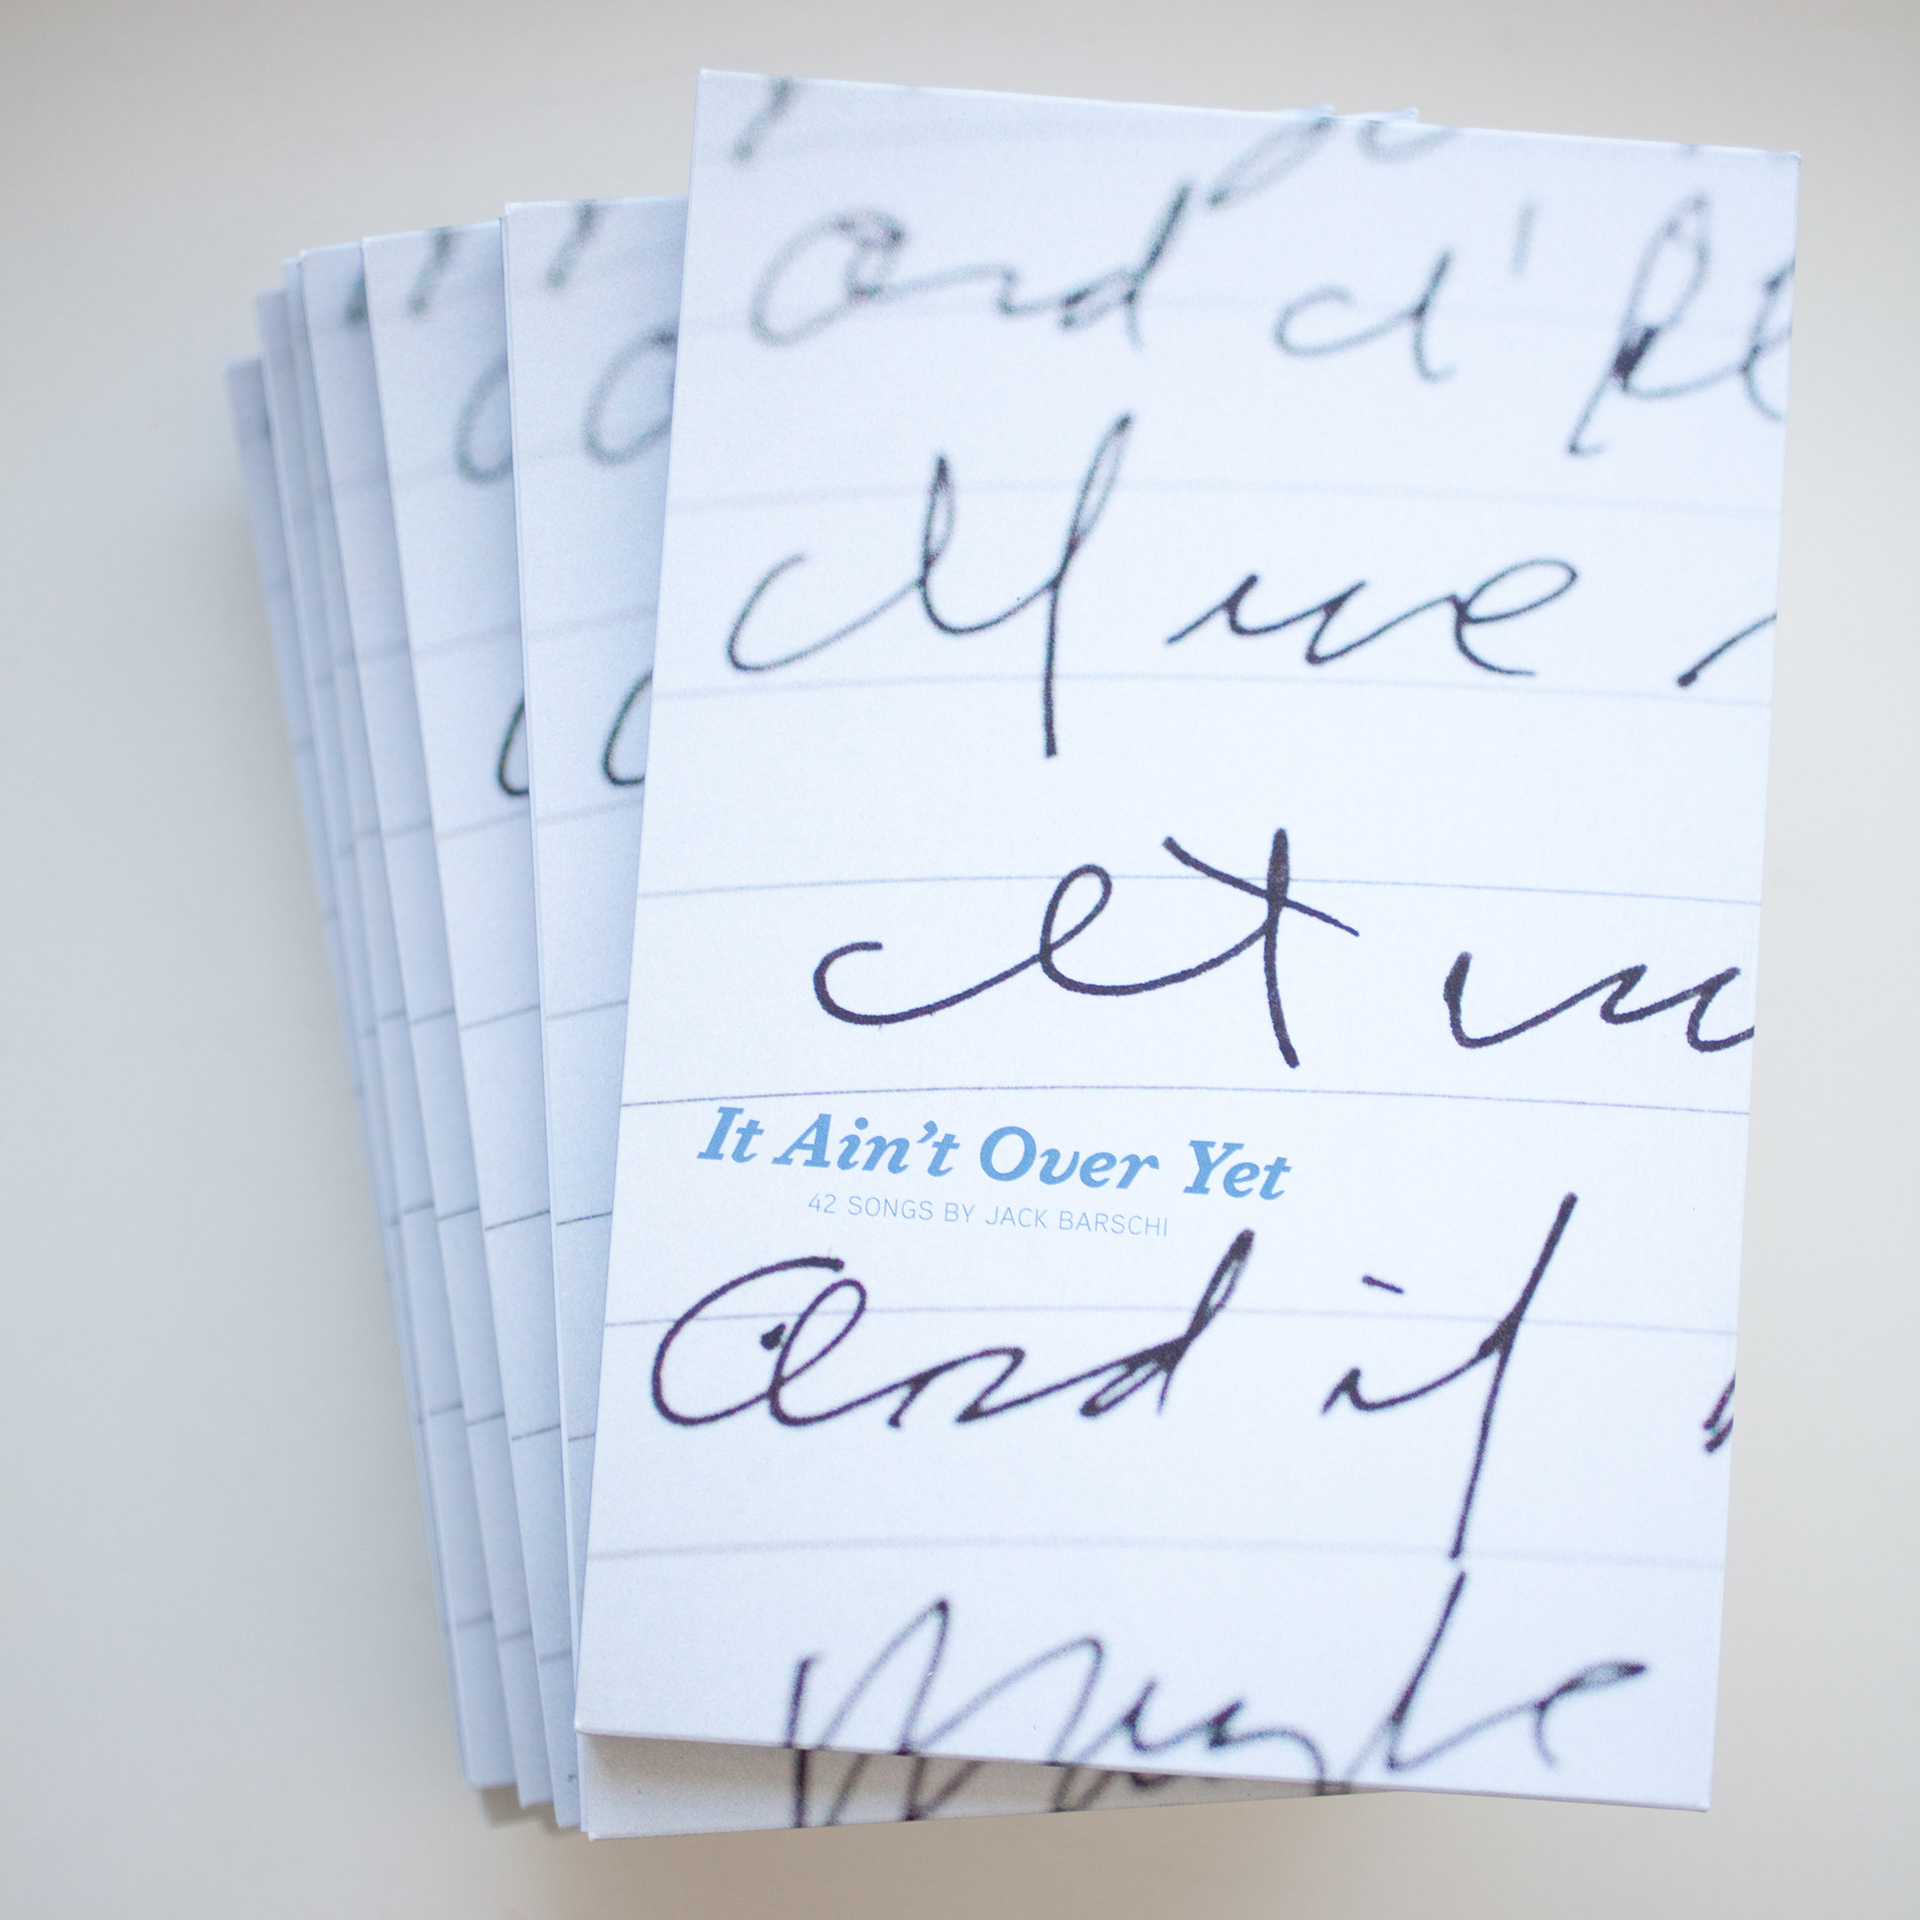 and I'
If we
It
It Ain't Over Yet
42 SONGS BY JACK BARSCHI
And if
Maybe